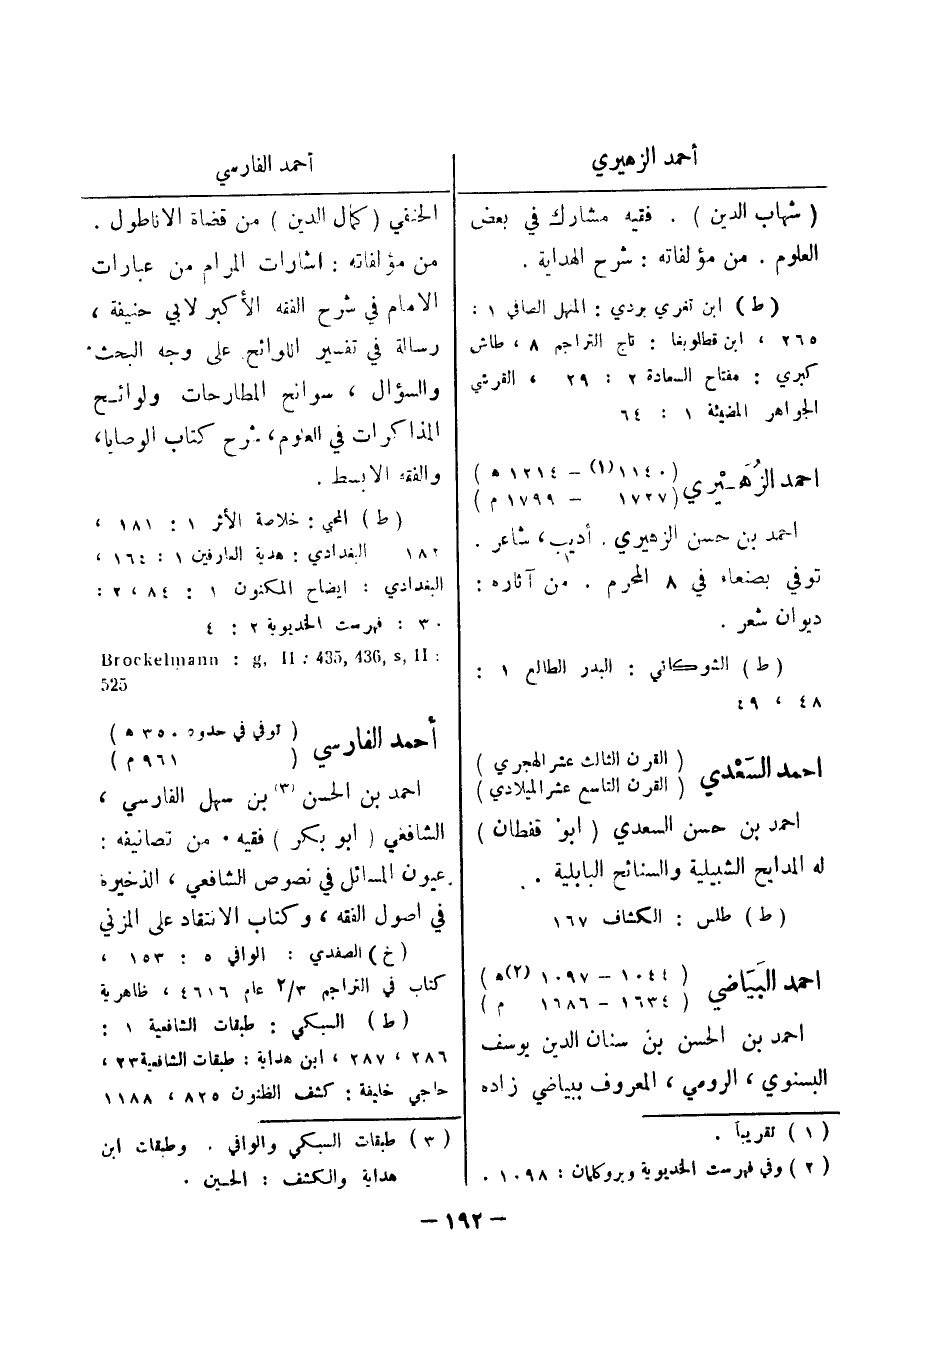 أحمد الزهيري
( شهاب الدين ) . فقيه مشارك في بعض
العلوم . من مؤلفاته : شرح الهداية .
( ط ) ابن تغري بردي : المنهل الصافي ١ :
٢٦٥ ، ابن قطلوبغا : تاج التراجم ٨ ، طاش
كبري : مفتاح السعادة ٢ : ٢٩ ، القرشي
الجواهر المضيئة ١ : ٦٤
احمد الزُهَـيْري
( ١١٤٠(١) – ١٢١٤ ه )
( ١٧٢٧ – ١٧٩٩ م )
احمد بن حسن الزهيري . أديب ، شاعر .
توفي بصنعاء في ٨ المحرم . من آثاره :
ديوان شعر .
( ط ) الشوكاني : البدر الطالع ١ :
٤٨ ، ٤٩
احمد السَعْدي
( القرن الثالث عشر الهجري )
( القرن التاسع عشر الميلادي )
احمد بن حسن السعدي ( ابو قفطان )
له المدايح الشبيلية والسنائح البابلية .
( ط ) طلس : الكشاف ١٦٧
احمد البَيَاضي
( ١٠٤٤ – ١٠٩٧ (٢)ه )
( ١٦٣٤ – ١٦٨٦ م )
احمد بن الحسن بن سنان الدين يوسف
البسنوي ، الرومي ، المعروف ببياضي زاده
( ١ ) تقريباً .
( ٢ ) وفي فهرست الخديوية وبروكلمان : ١٠٩٨ .
أحمد الفارسي
الحنفي ( كمال الدين ) من قضاة الاناطول .
من مؤلفاته : اشارات المرام من عبارات
الامام في شرح الفقه الأكبر لابي حنيفة ،
رسالة في تفسير اناوائح على وجه البحث
والسؤال ، سوانح المطارحات ولوائح
المذاكرات في العلوم ، شرح كتاب الوصايا ،
والفقه الابسط .
( ط ) المحبي : خلاصة الأثر ١ : ١٨١ ،
١٨٢ البغدادي : هدية العارفين ١ : ١٦٤ ،
البغدادي : ايضاح المكنون ١ : ٨٤ ، ٢ :
٣٠ : فهرست الخديوية ٢ : ٤
Brockelmann : g, II : 435, 436, s, II :
525
أحمد الفارسي
( توفي في حدود ٣٥٠ ه )
( ٩٦١ م )
احمد بن الحسن (٣) بن سهل الفارسي ،
الشافعي ( ابو بكر ) فقيه . من تصانيفه :
عيون المسائل في نصوص الشافعي ، الذخيرة
في اصول الفقه ، وكتاب الانتقاد على المزني
( خ ) الصفدي : الوافي ٥ : ١٥٣ ،
كتاب في التراجم ٢/٣ عام ٤٦١٦ ، ظاهرية
( ط ) السبكي : طبقات الشافعية ١ :
٢٨٦ ، ٢٨٧ ، ابن هداية : طبقات الشافعية ٢٣ ،
حاجي خليفة : كشف الظنون ٨٢٥ ، ١١٨٨
( ٣ ) طبقات السبكي والوافي . وطبقات ابن
هداية والكشف : الحسين .
– ١٩٢ –